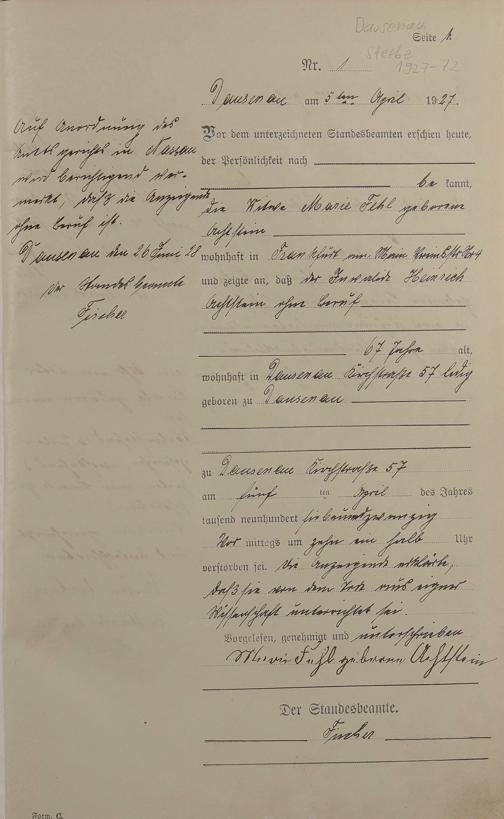 Dausenau
Sterbe
1927-72
Seite 1.
Nr. 1
Dausenau am 5ten April 1927.
Vor dem unterzeichneten Standesbeamten erschien heute,
der Persönlichkeit nach
be kannt,
die Witwe Marie Fehl geborene
Achtstein
wohnhaft in Frankfurt am Main
und zeigte an, daß der Invalide Heinrich
Achtstein ohne Beruf
67 Jahre alt,
wohnhaft in Dausenau Kirchstraße 57 ledig
geboren zu Dausenau
zu Dausenau Kirchstraße 57
am fünf ten April des Jahres
tausend neunhundert siebenundzwanzig
Vor mittags um zehn ein halb Uhr
verstorben sei. Die Anzeigende erklärte,
daß sie von dem Tode aus eigner
Wissenschaft unterrichtet sei.
Vorgelesen, genehmigt und unterschrieben
Marie Fehl geborene Achtstein
Der Standesbeamte.
Fischer
Auf Anordnung des
Amtsgerichts in Nassau
wird berichtigend ver-
merkt, daß die Anzeigende
ohne Beruf ist.
Dausenau den 26 Juni 28
Der Standesbeamte
Fischer
Form. C.